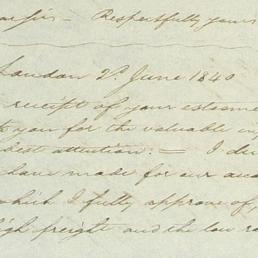 Sir – Respectfully yours
London 2d. June 1840
receipt of your esteeme
to you for the valuable in
best attention: — I
have made for our acc
which I fully approve of,
high freight and the low ra